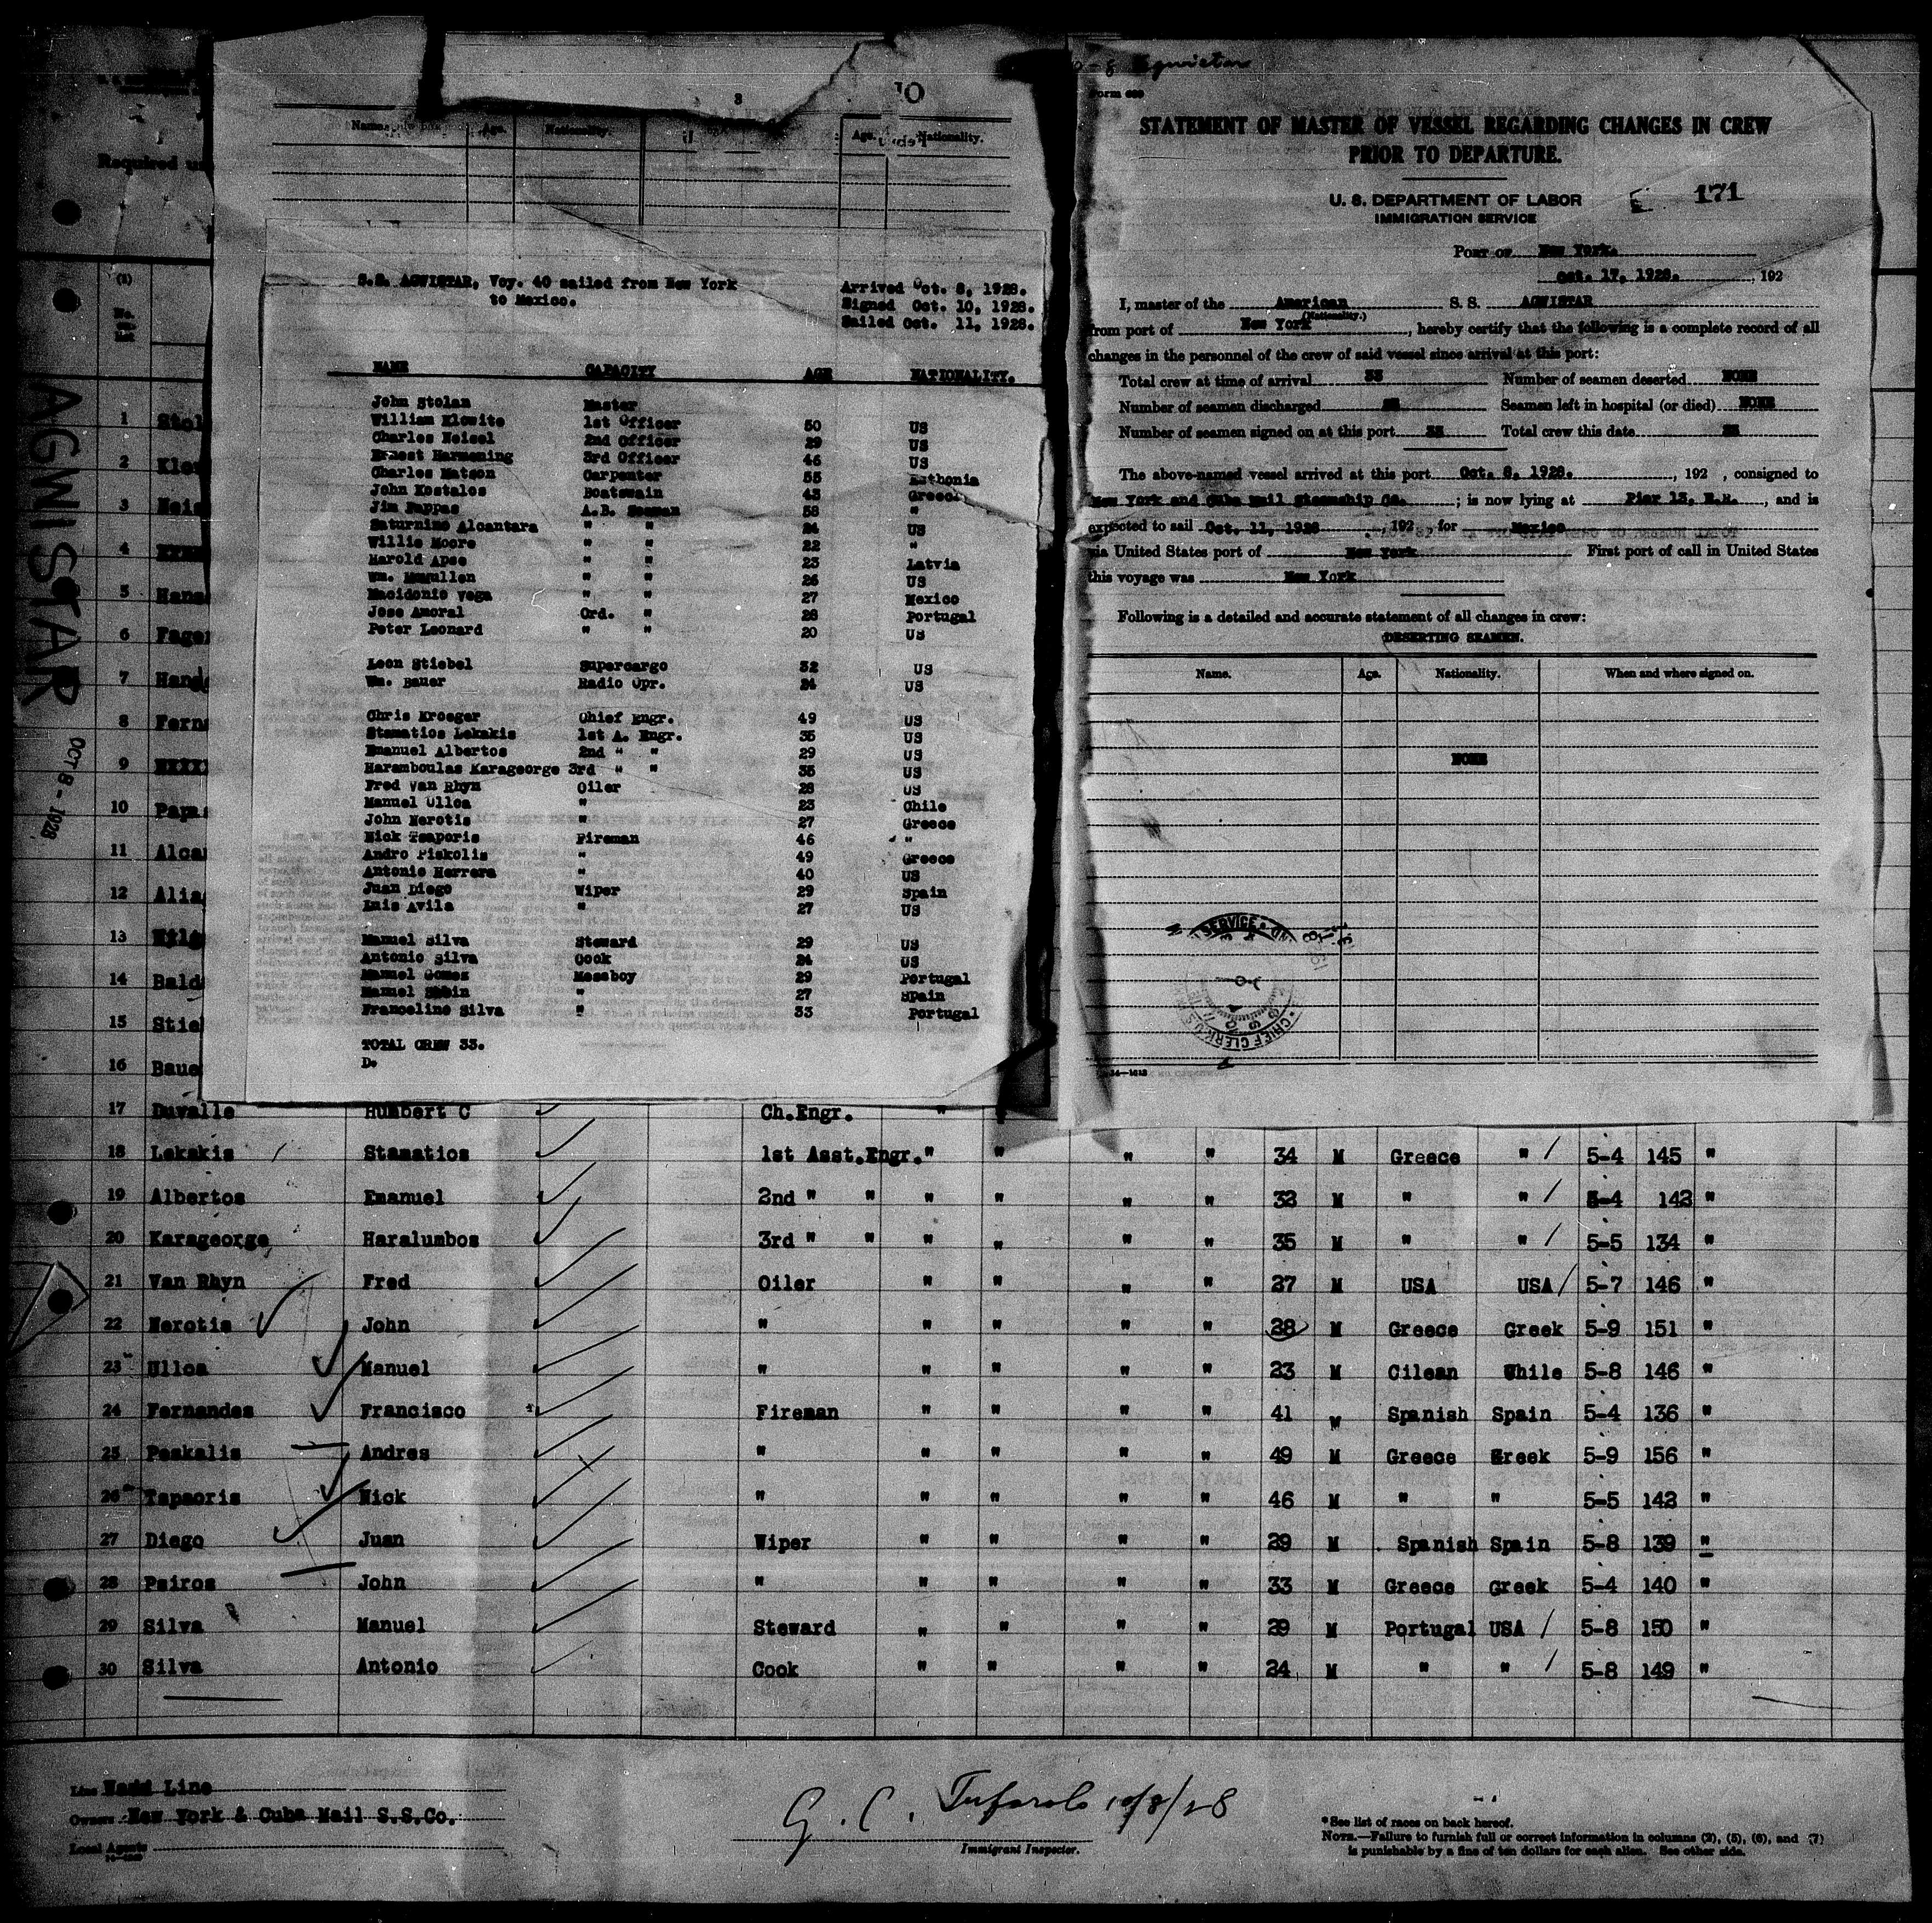 3
10
Name.
Age.
Nationality.
Age.
Nationality.
Required un
(1)
No.
on
list
AGWISTAR
OCT 8 - 1928
S.S. AGWISTAR, Voy. 40 sailed from New York
to Mexico.
Arrived Oct. 8, 1928.
Signed Oct. 10, 1928.
Sailed Oct. 11, 1928.
NAME CAPACITY AGE NATIONALITY.
John Stolan Master
William Klowite 1st Officer 50 US
Charles Neisel 2nd Officer 29 US
Ernest Harmening 3rd Officer 46 US
Charles Matson Carpenter 55 Esthonia
John Kostalos Boatswain 43 Greece
Jim Pappas A.B. Seaman 58 "
Saturnino Alcantara " " 24 US
Willie Moore " " 22 "
Harold Apse " " 23 Latvia
Wm. McMullen " " 26 US
Macidonio Vega " " 27 Mexico
Jose Amoral Ord. " 28 Portugal
Peter Leonard " " 20 US
Leon Stiebel Supercargo 32 US
Wm. Bauer Radio Opr. 24 US
Chris Kroeger Chief Engr. 49 US
Stamatios Lekakis 1st A. Engr. 35 US
Emanuel Albertos 2nd " " 29 US
Haramboulas Karageorge 3rd " " 35 US
Fred Van Rhyn Oiler 28 US
Manuel Ulloa " 23 Chile
John Nerotis " 27 Greece
Nick Tsaporis Fireman 46 "
Andro Piskolis " 49 Greece
Antonio Herrera " 40 US
Juan Diego Wiper 29 Spain
Luis Avila " 27 US
Manuel Silva Steward 29 US
Antonio Silva Cook 24 US
Manuel Gomez Messboy 29 Portugal
Manuel " 27 Spain
Francelino Silva " 33 Portugal
TOTAL CREW 33.
D.
Agwistar
Form 689
STATEMENT OF MASTER OF VESSEL REGARDING CHANGES IN CREW
PRIOR TO DEPARTURE.
U. S. DEPARTMENT OF LABOR
IMMIGRATION SERVICE
171
Port of New York.
Oct. 17, 1928. , 192
I, master of the American S. S. AGWISTAR
(Nationality.)
from port of New York , hereby certify that the following is a complete record of all
changes in the personnel of the crew of said vessel since arrival at this port:
Total crew at time of arrival 33 Number of seamen deserted NONE
Number of seamen discharged Seamen left in hospital (or died) NONE
Number of seamen signed on at this port 33 Total crew this date
The above-named vessel arrived at this port Oct. 8, 1928. , 192 , consigned to
New York and Cuba Mail Steamship Co. ; is now lying at Pier 13, E.R. , and is
expected to sail Oct. 11, 1928 , 192 for Mexico
via United States port of New York First port of call in United States
this voyage was New York
Following is a detailed and accurate statement of all changes in crew:
DESERTING SEAMEN.
Name. Age. Nationality. When and where signed on.
NONE
SERVICE
CHIEF CLERK U.S.
14-1613
1 Stol
2 Klow
3 Neis
4
5 Hans
6 Fager
7 Hand
8 Fern
9 XXXX
10 Papa
11 Alca
12 Alia
13
14 Bald
15 Stie
16 Baue
17 Duvalle Humbert C Ch.Engr. "
18 Lekakis Stamatios 1st Asst.Engr. " " " " 34 M Greece " / 5-4 145 "
19 Albertos Emanuel 2nd " " " " " " 32 M " " / 5-4 142 "
20 Karageorge Haralumbos 3rd " " " " " " 35 M " " / 5-5 134 "
21 Van Rhyn Fred Oiler " " " " 27 M USA USA / 5-7 146 "
22 Nerotis John " " " " " 28 M Greece Greek 5-9 151 "
23 Ulloa Manuel " " " " " 23 M Cilean Chile 5-8 146 "
24 Fernandes Francisco Fireman " " " " 41 M Spanish Spain 5-4 136 "
25 Peakalis Andres " " " " " 49 M Greece Greek 5-9 156 "
26 Tapaoris Nick " " " " " 46 M " " 5-5 142 "
27 Diego Juan Wiper " " " " 29 M Spanish Spain 5-8 139 "
28 Psiros John " " " " " 33 M Greece Greek 5-4 140 "
29 Silva Manuel Steward " " " " 29 M Portugal USA / 5-8 150 "
30 Silva Antonio Cook " " " " 24 M " " / 5-8 149 "
Line Ward Line
Owners New York & Cuba Mail S.S.Co.
Local Agents
G. C. Tuforolo 10/8/28
Immigrant Inspector.
*See list of races on back hereof.
Note.—Failure to furnish full or correct information in columns (2), (5), (6), and (7)
is punishable by a fine of ten dollars for each alien. See other side.